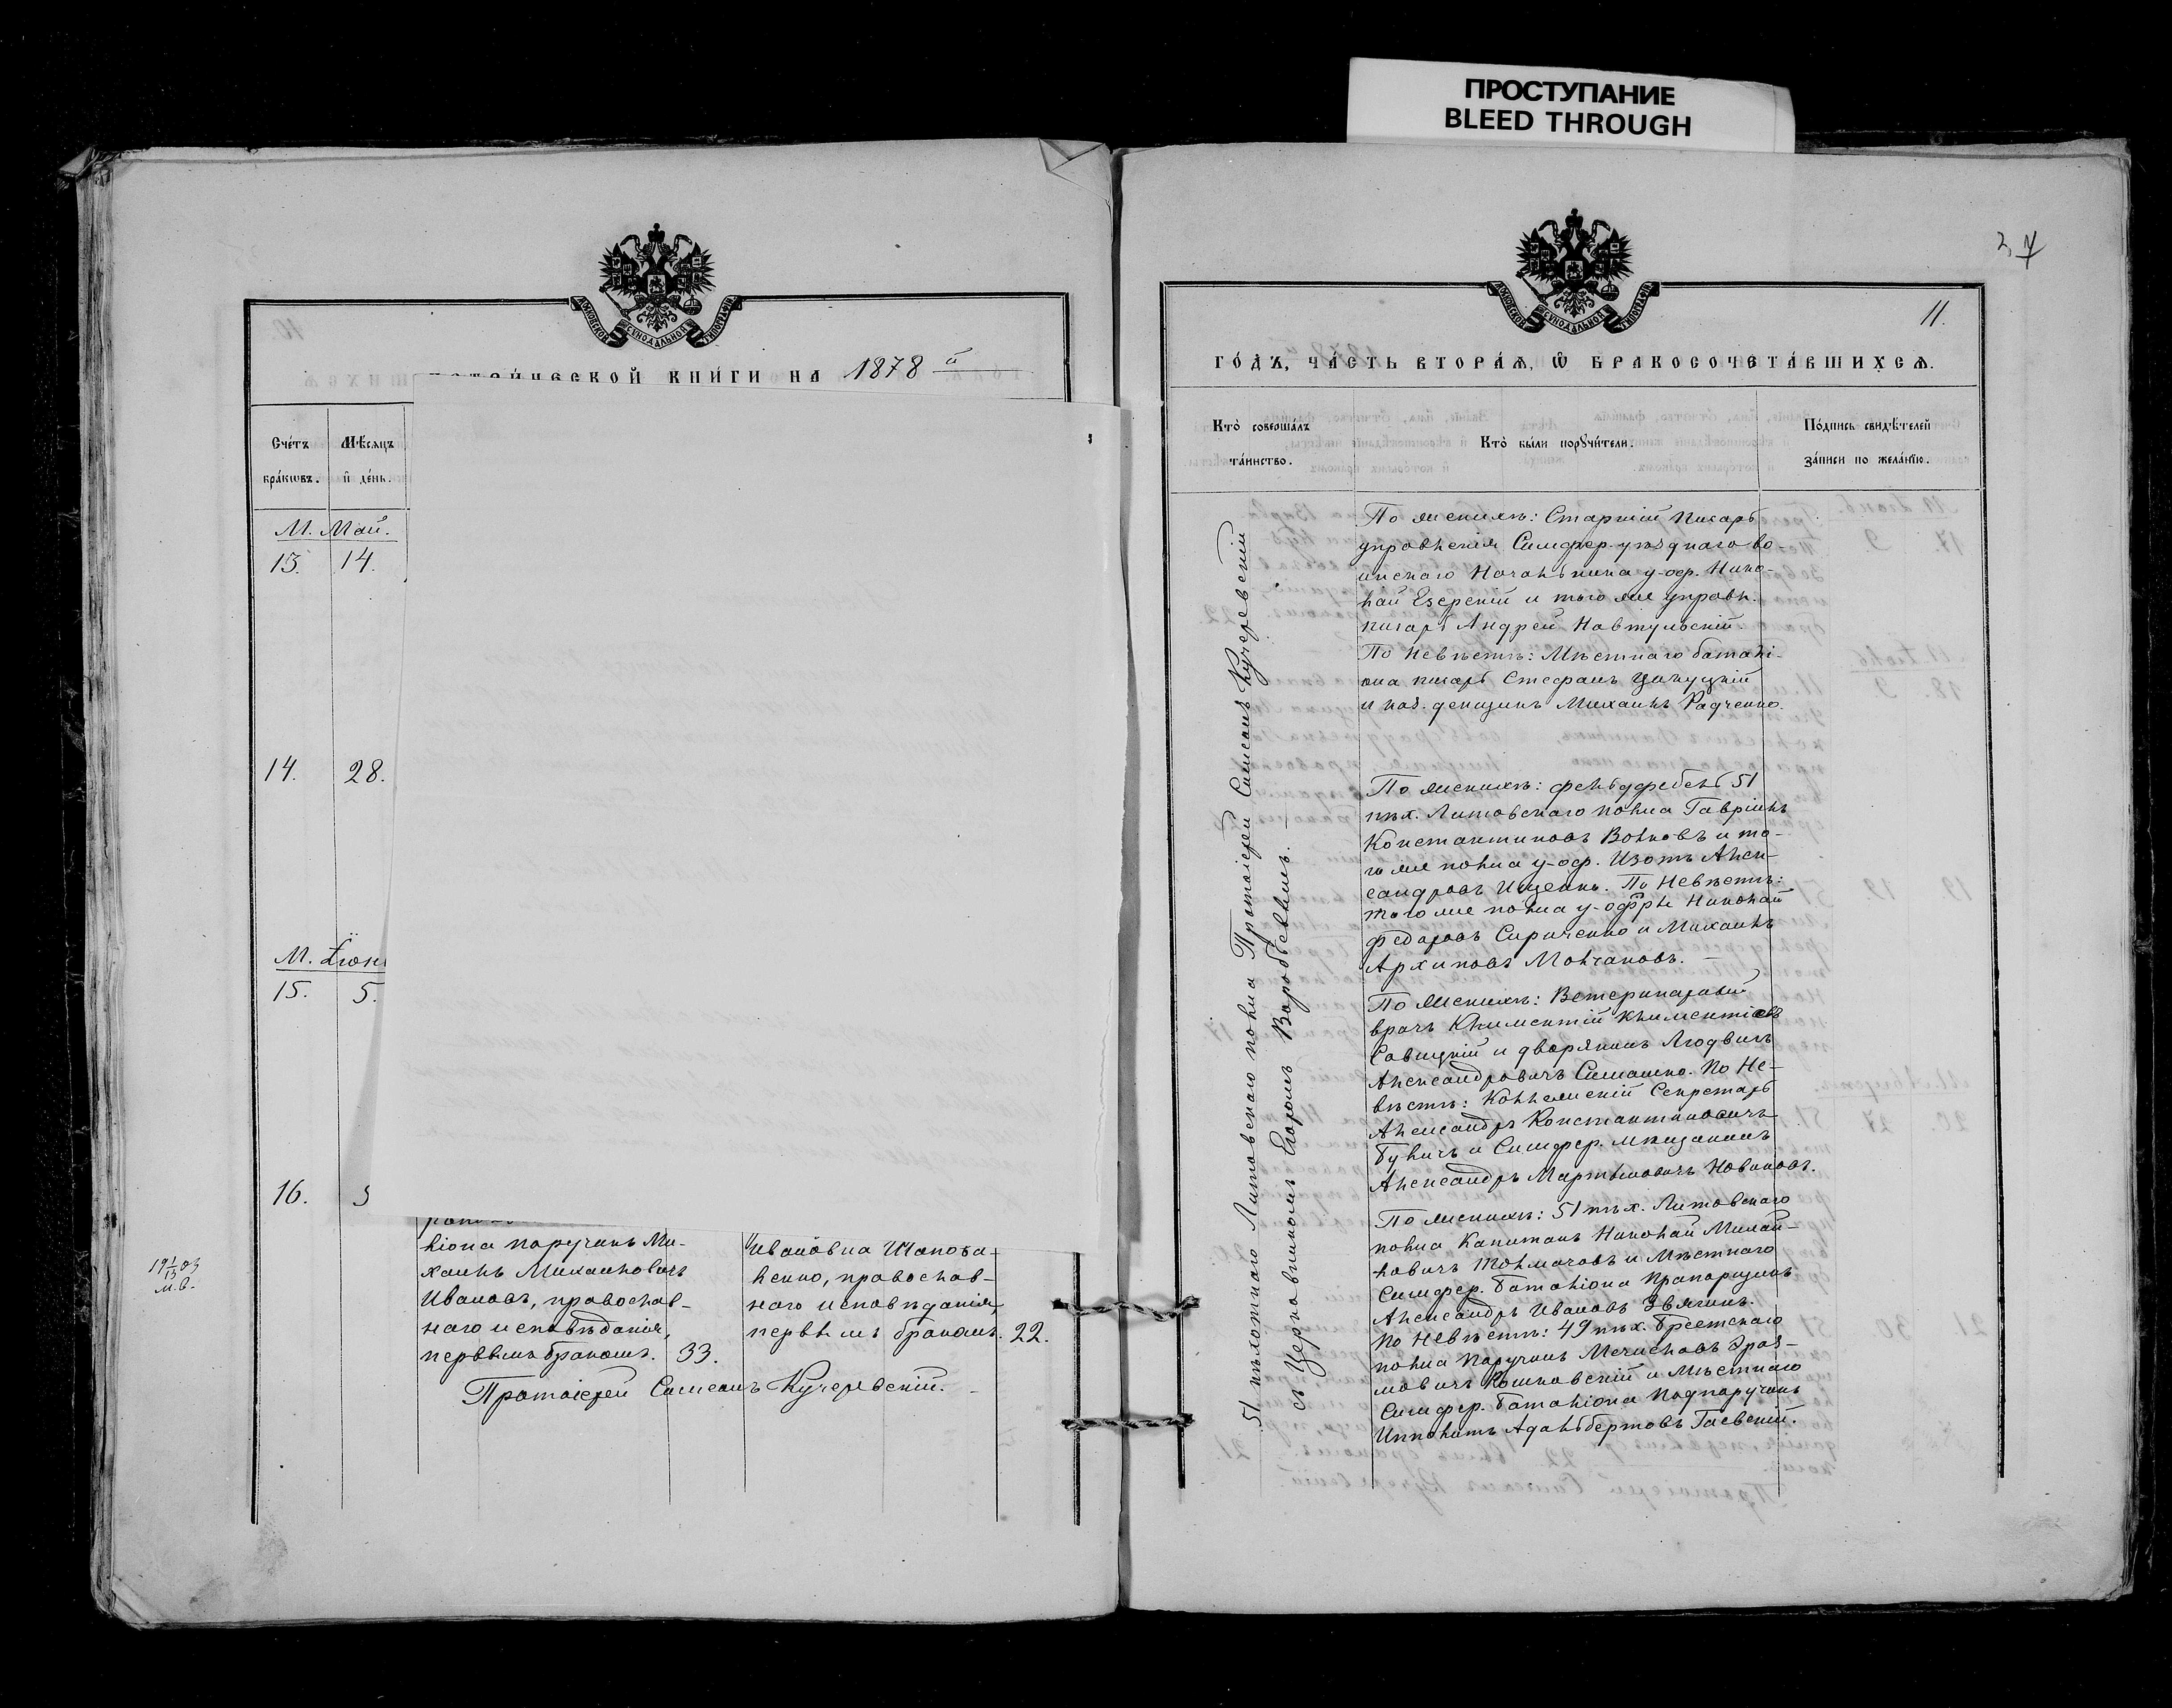 ПРОСТУПАНИЕ
BLEED THROUGH
КНИ́ГИ НА 1878 й
Сче́тъ бра́кѡвъ.
Мѣ́сяцъ и҆ де́нь.
М. Май.
13. 14.
14. 28.
М. Іюн
15. 5.
16.
ліона поручикъ Ми-
хаилъ Михаиловичъ
Ивановъ, православ-
наго исповѣданія,
первымъ бракомъ. 33.
Ивановна Шапова-
ленко, православ-
наго исповѣданія,
первымъ бракомъ. 22.
Протоіерей Симеонъ Кучеревскій.
11.
ГО́ДЪ, ЧА́СТЬ ВТОРА́Ѧ, Ѡ҆ БРАКОСОЧЕТА́ВШИХСѦ.
Кто̀ соверша́лъ та́инство.
Кто̀ бы́ли порꙋчи́тели.
По́дпись свидѣ́телей за́писи по жела́нїю.
51 пѣхотнаго Литовскаго полка Протоіерей Симеонъ Кучеревскій
съ Церковникомъ Егоромъ Воробьевымъ.
По женихѣ: Старшій писарь
управленія Симфер. уѣзднаго во-
инскаго Начальника у-оф. Нико-
лай Езерскій и того же управл.
писарь Андрей Навтульскій.
По Невѣстѣ: Мѣстнаго баталі-
она писарь Стефанъ Цинуцкій
и каз. денщикъ Михаилъ Радченко.
По женихѣ: фельдфебель 51
пѣх. Литовскаго полка Гавріилъ
Константиновъ Волковъ и то-
го же полка у-оф. Изотъ Алек-
сандровъ Ищенко. По Невѣстѣ:
того же полка у-офры Николай
Федоровъ Сириченко и Михаилъ
Архиповъ Молчановъ.
По женихѣ: Ветеринарный
врачъ Климентій Климентіевъ
Савицкій и дворянинъ Людвигъ
Александровичъ Симашко. По Не-
вѣстѣ: Коллежскій Секретарь
Александръ Константиновичъ
Буличъ и Симфер. мѣщанинъ
Александръ Мартыновичъ Новиковъ.
По женихѣ: 51 пѣх. Литовскаго
полка Капитанъ Николай Михай-
ловичъ Толмачовъ и Мѣстнаго
Симфер. баталіона Прапорщикъ
Александръ Ивановъ Звягинъ.
По Невѣстѣ: 49 пѣх. Брестскаго
полка Поручикъ Мечиславъ Эраз-
мовичъ Кошковскій и Мѣстнаго
Симфер. баталіона Подпоручикъ
Ипполитъ Адальбертовъ Гаевскій.